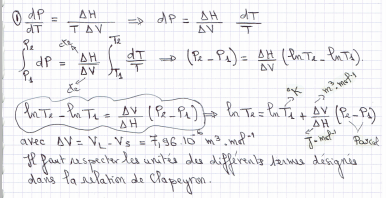 ① dP/dT = ΔH/(T ΔV) ⇒ dP = ΔH/ΔV dT/T
∫_{P1}^{P2} dP = ΔH/ΔV ∫_{T1}^{T2} dT/T ⇒ (P2 - P1) = ΔH/ΔV (ln T2 - ln T1).
ln T2 - ln T1 = ΔV/ΔH (P2 - P1) ⇒ ln T2 = ln T1 + ΔV/ΔH (P2 - P1)
°K m³·mol⁻¹ J·mol⁻¹ Pascal
avec ΔV = VL - VS = 7,96.10⁻⁶ m³·mol⁻¹
Il faut respecter les unités des différents termes désignés
dans la relation de Clapeyron.